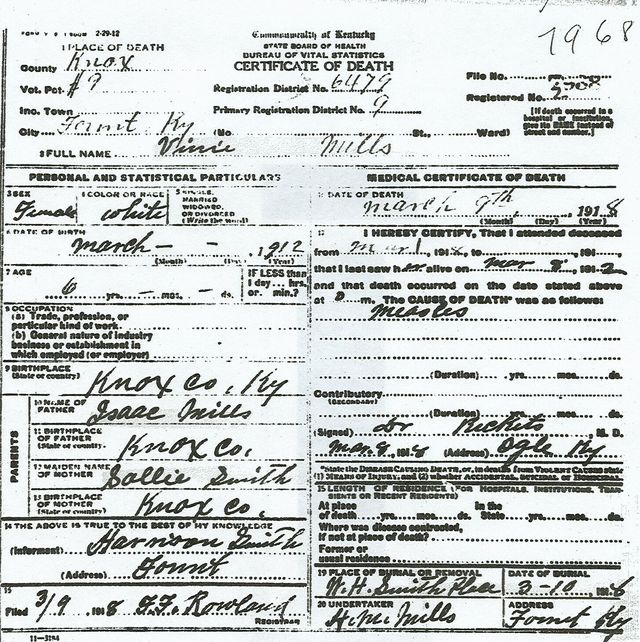 2-29-12
1968
Commonwealth of Kentucky
STATE BOARD OF HEALTH
BUREAU OF VITAL STATISTICS
CERTIFICATE OF DEATH
1 PLACE OF DEATH
County Knox
Vot. Pct. #9
Inc. Town
City Fount Ky (No St., Ward)
Registration District No. 6479
Primary Registration District No. 9
File No.
Registered No.
[If death occurred in a hospital or institution, give its NAME instead of street and number.]
2 FULL NAME Vinie Mills
PERSONAL AND STATISTICAL PARTICULARS
3 SEX Female
4 COLOR OR RACE white
5 SINGLE, MARRIED WIDOWED, OR DIVORCED (Write the word)
6 DATE OF BIRTH
March - - , 1912
(Month) (Day) (Year)
7 AGE
6 yrs. - mos. - ds.
IF LESS than 1 day... hrs. or min.?
8 OCCUPATION
(a) Trade, profession, or particular kind of work
(b) General nature of industry
business or establishment in
which employed (or employer)
9 BIRTHPLACE (State or country) Knox co, Ky
PARENTS
10 NAME OF FATHER Isaac Mills
11 BIRTHPLACE OF FATHER (State or country) Knox co.
12 MAIDEN NAME OF MOTHER Sallie Smith
13 BIRTHPLACE OF MOTHER (State or country) Knox co.
14 THE ABOVE IS TRUE TO THE BEST OF MY KNOWLEDGE
(Informant) Harrison Smith
(Address) Fount
15
Filed 3/9 1918 F.F. Rowland
REGISTRAR
11-3184
MEDICAL CERTIFICATE OF DEATH
16 DATE OF DEATH
March 9th, 1918
(Month) (Day) (Year)
17 I HEREBY CERTIFY, That I attended deceased
from Mar 1, 1918, to 191
that I last saw her alive on Mar 8, 191
and that death occurred on the date stated above
at m. The CAUSE OF DEATH* was as follows:
Measles
(Duration) yrs. mos. ds.
Contributory
(SECONDARY)
(Duration) yrs. mos. ds.
(Signed) Dr Rickets M. D.
Mar 9 1918 (Address) Ogle Ky
*State the DISEASE CAUSING DEATH, or, in deaths from VIOLENT CAUSES state (1) MEANS OF INJURY, and (2) whether ACCIDENTAL, SUICIDAL OR HOMICIDAL
18 LENGTH OF RESIDENCE (FOR HOSPITALS, INSTITUTIONS, TRANSIENTS OR RECENT RESIDENTS)
At place of death yrs. mos. ds. In the State yrs. mos. ds.
Where was disease contracted,
if not at place of death?
Former or
usual residence
19 PLACE OF BURIAL OR REMOVAL
W.H. Smith Place
DATE OF BURIAL
3-10, 1918
20 UNDERTAKER
H.M. Mills
ADDRESS
Fount Ky